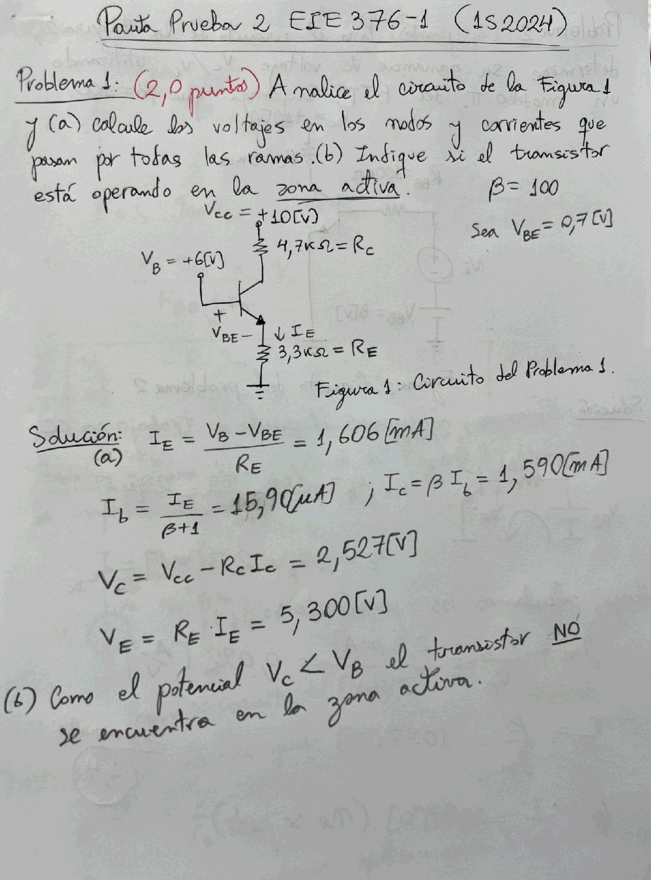 Pauta Prueba 2 EIE 376-1 (1S2024)
Problema 1: (2,0 puntos) Analice el circuito de la Figura 1
y (a) calcule los voltajes en los nodos y corrientes que
pasan por todas las ramas. (b) Indique si el transistor
está operando en la zona activa.
β = 100
Sea V_BE = 0,7[V]
V_CC = +10[V]
4,7KΩ = R_C
V_B = +6[V]
+
V_BE -
↓ I_E
3,3KΩ = R_E
Figura 1: Circuito del Problema 1.
Solución: I_E = (V_B - V_BE) / R_E = 1,606[mA]
(a)
I_b = I_E / (β+1) = 15,90[μA] ; I_c = β I_b = 1,590[mA]
V_C = V_cc - R_C I_c = 2,527[V]
V_E = R_E · I_E = 5,300[V]
(b) Como el potencial V_C < V_B el transistor NO
se encuentra en la zona activa.